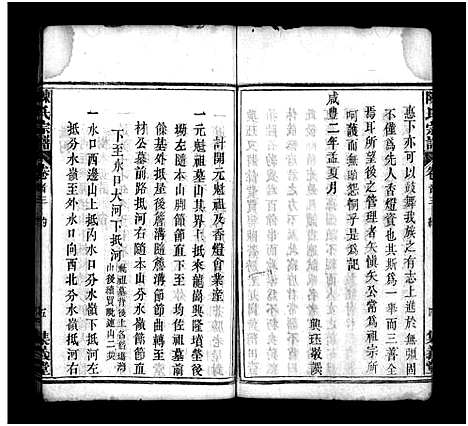 惠下亦可以鼓舞我族之有志上進於無彊固
不僅為先人香燈資也其斯為一舉而三善全
焉耳所望後之管理者矢慎矢公常為祖宗所
呵護而無怨恫乎是為記
咸豐二年孟夏月
興珏敬譔
陳氏宗譜
卷首三
集義堂
計開元魁祖及香燈會業產
一元魁祖墓山其界上抵來龍崗興隆墳塋後
坳左隨本山分水嶺節節直下至 均佐祖墓前
墓外抵小嶺隨嶺直下抵簷溝隨簷溝節節曲轉至
材公墓前路抵河右隨本山分水嶺節節直
下至水口大河下抵河
一水口西邊山上抵內水口分水嶺下抵大河左
分水嶺至外水口向西北分水嶺抵河右